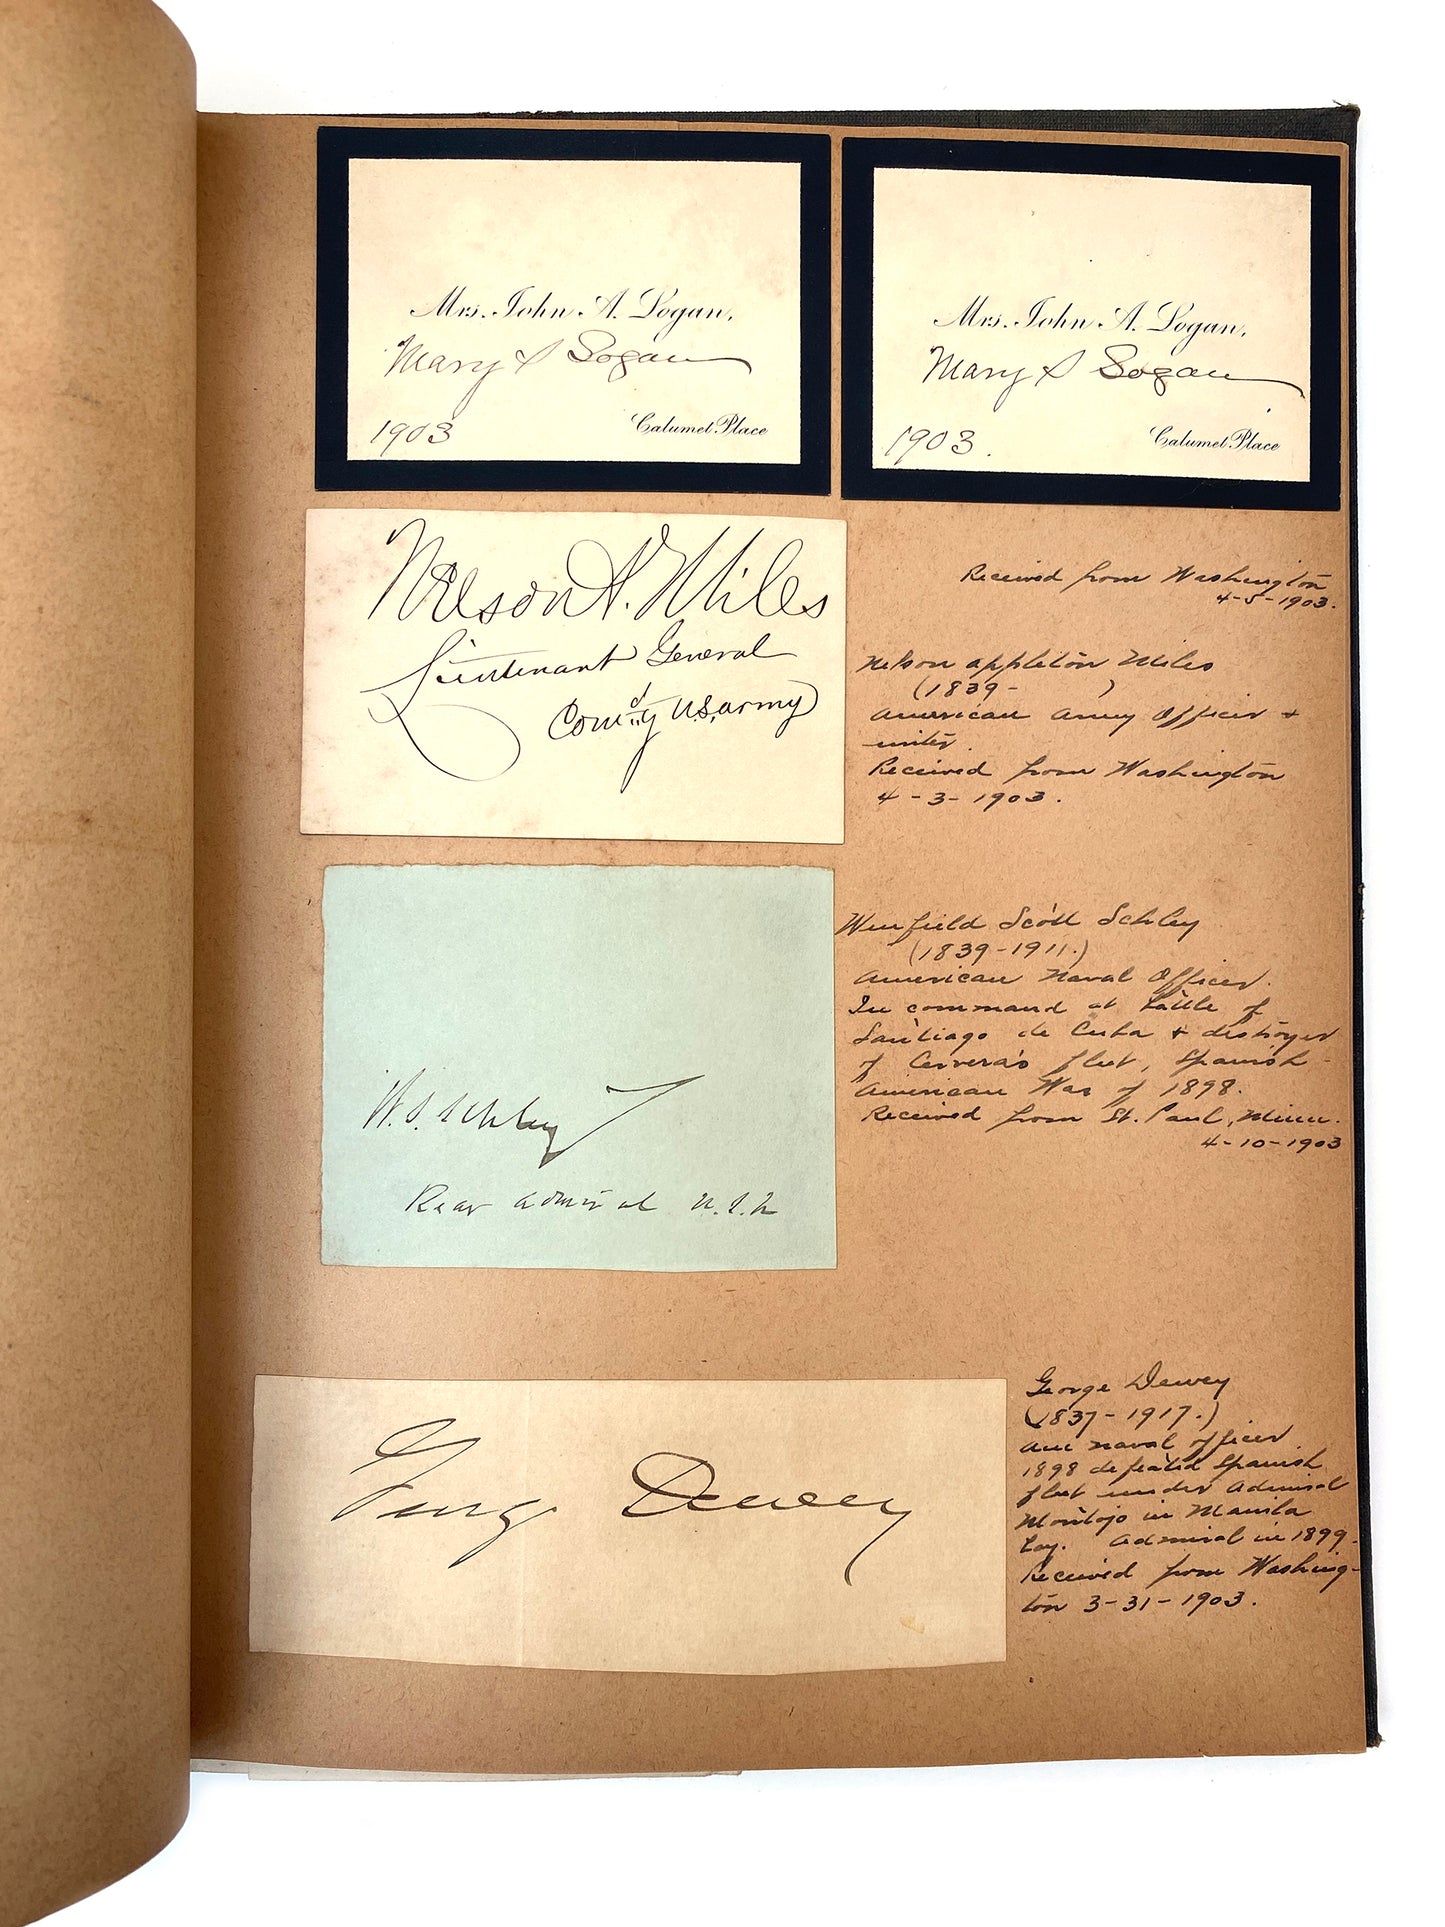 Mrs. John A. Logan,
Mary S Logan
1903
Calumet Place
Mrs. John A. Logan,
Mary S Logan
1903.
Calumet Place
Received from Washington
4-5-1903.
Nelson A. Miles
Lieutenant General
Comd'g U.S. Army
Nelson Appleton Miles
(1839-     )
American Army Officer +
writer.
Received from Washington
4-3-1903.
W. S. Schley
Rear Admiral U.S.N
Winfield Scott Schley
(1839-1911.)
American Naval Officer.
In command at battle of
Santiago de Cuba + destroyer
of Cervera's fleet, Spanish-
American War of 1898.
Received from St. Paul, Minn.
4-10-1903
George Dewey
George Dewey
(1837-1917.)
Am naval officer
1898 defeated Spanish
fleet under Admiral
Montojo in Manila
bay. Admiral in 1899.
Received from Washing-
ton 3-31-1903.